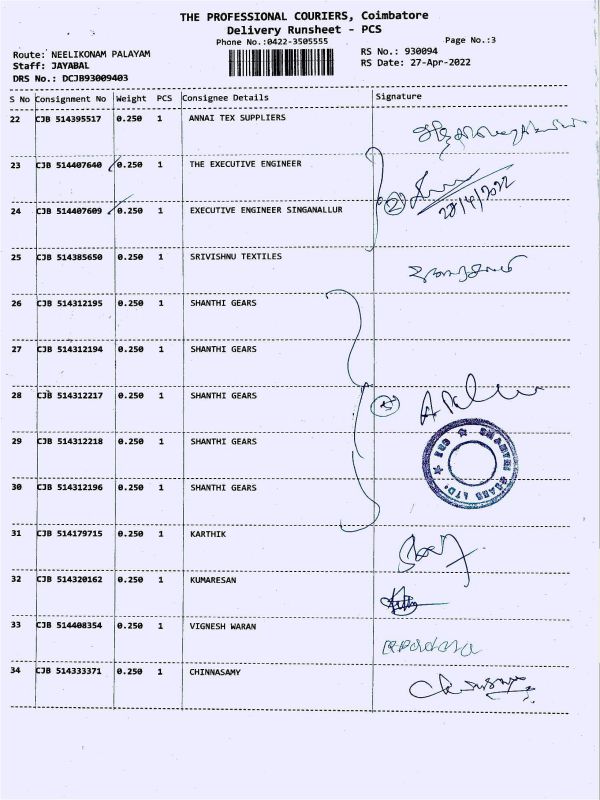 THE PROFESSIONAL COURIERS, Coimbatore
Delivery Runsheet - PCS
Phone No.:0422-3505555
Page No.:3
Route: NEELIKONAM PALAYAM
RS No.: 930094
Staff: JAYABAL
RS Date: 27-Apr-2022
DRS No.: DCJB93009403
S No Consignment No Weight PCS Consignee Details Signature
22 CJB 514395517 0.250 1 ANNAI TEX SUPPLIERS
23 CJB 514407640 0.250 1 THE EXECUTIVE ENGINEER
2 28/4/2022
24 CJB 514407609 0.250 1 EXECUTIVE ENGINEER SINGANALLUR
25 CJB 514385650 0.250 1 SRIVISHNU TEXTILES
26 CJB 514312195 0.250 1 SHANTHI GEARS
27 CJB 514312194 0.250 1 SHANTHI GEARS
28 CJB 514312217 0.250 1 SHANTHI GEARS
29 CJB 514312218 0.250 1 SHANTHI GEARS
SHANTHI GEARS LTD.
30 CJB 514312196 0.250 1 SHANTHI GEARS
31 CJB 514179715 0.250 1 KARTHIK
32 CJB 514320162 0.250 1 KUMARESAN
33 CJB 514408354 0.250 1 VIGNESH WARAN
34 CJB 514333371 0.250 1 CHINNASAMY